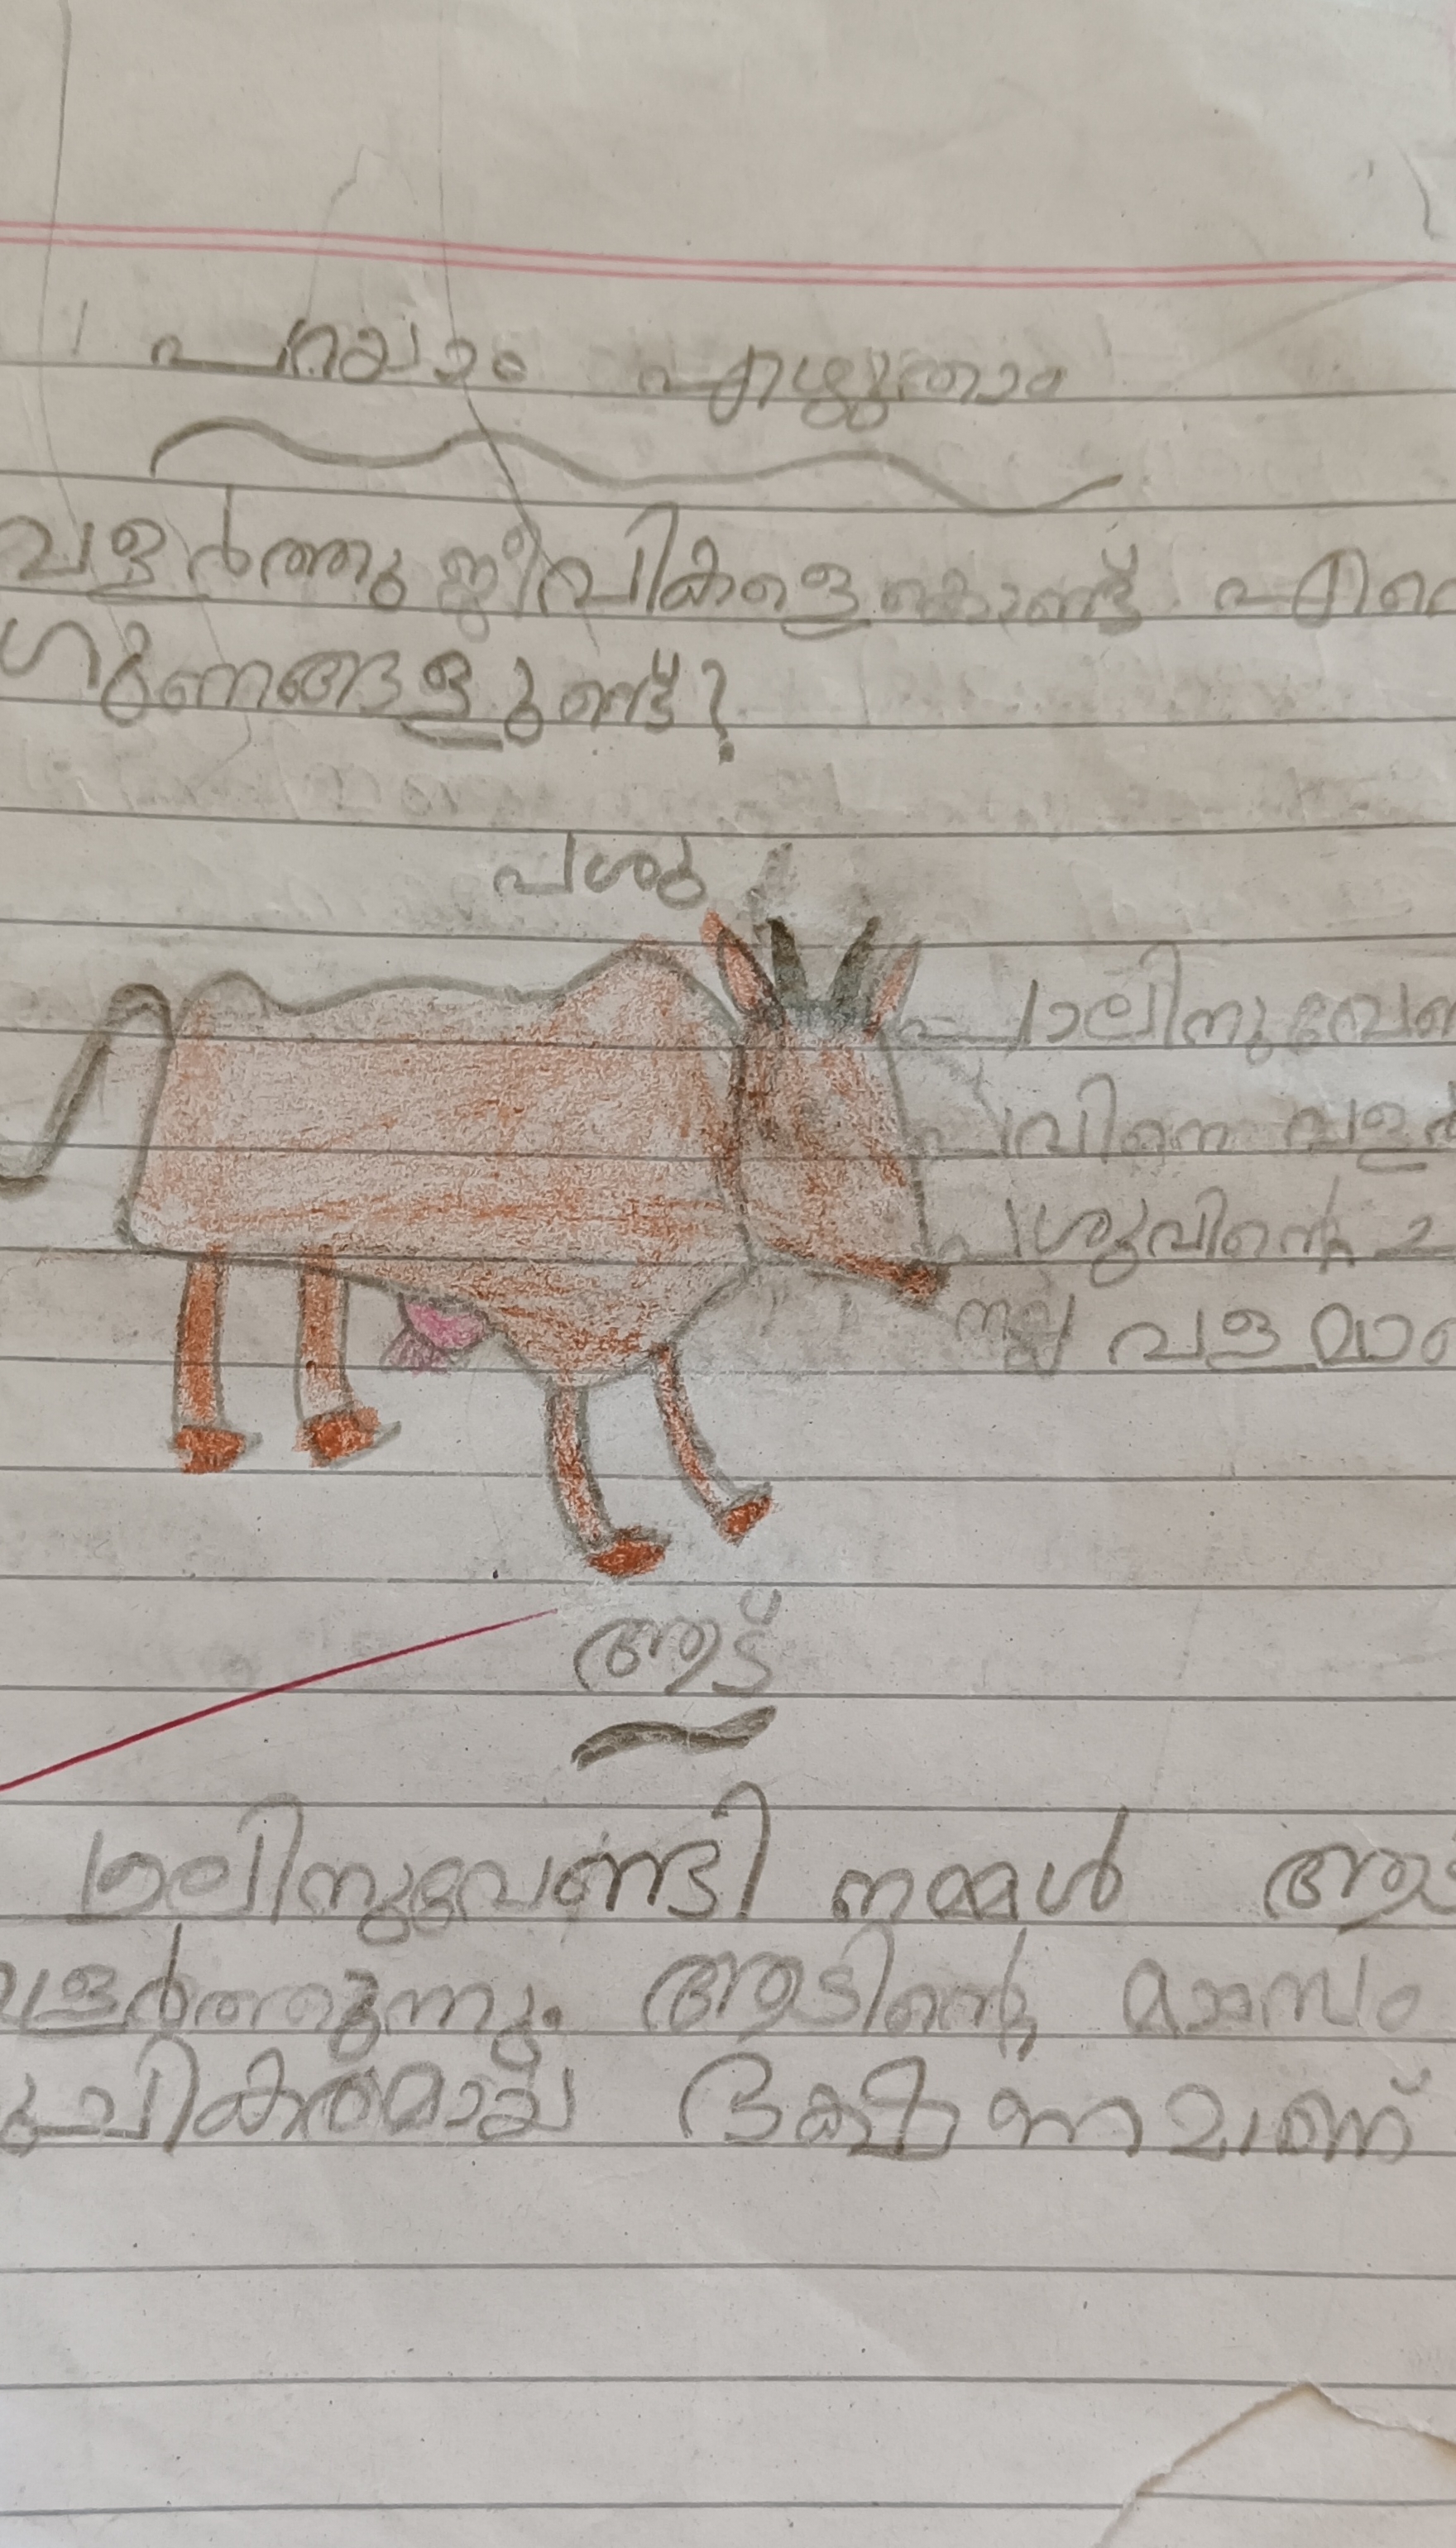 പറയാം എഴുതാം
വളർത്തു ജീവികളെകൊണ്ട്
ഗുണങ്ങളുണ്ട്?
പശു
പാലിനുവേണ
പവിനെ വളർ
പശുവിന്റെ ച
നല്ല വളമാണ
ആട്
ാലിനുവേണ്ടി നമ്മൾ ആട
വളർത്തുന്നു. ആടിന്റെ മാമസം
ുചികരമായ ഭക്ഷണമാണ്